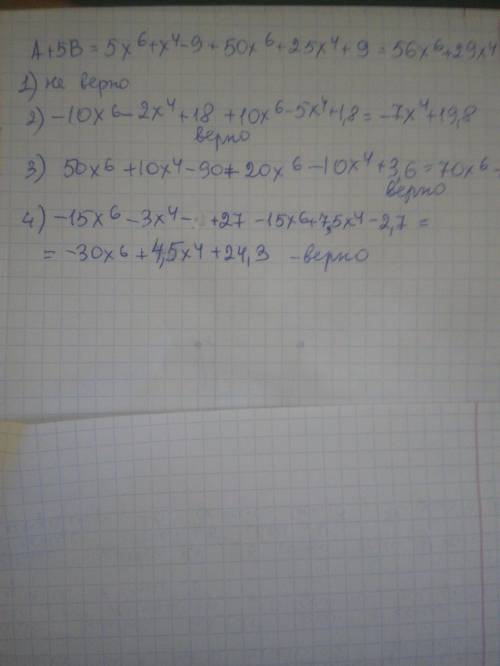 A+5B = 5x⁶+x⁴-9+50x⁶+25x⁴+9 = 56x⁶+29x⁴
1) не верно
2) -10x⁶-2x⁴+18+10x⁶-5x⁴+1,8 = -7x⁴+19,8
верно
3) 50x⁶+10x⁴-90+20x⁶-10x⁴+3,6=70x⁶-
верно
4) -15x⁶-3x⁴- +27-15x⁶+7,5x⁴-2,7=
= -30x⁶+4,5x⁴+24,3 -верно